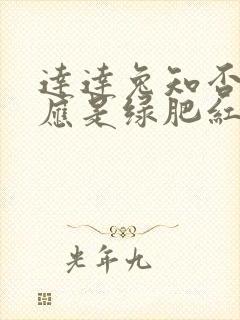 達達兔知否
應是绿肥紅
光年九